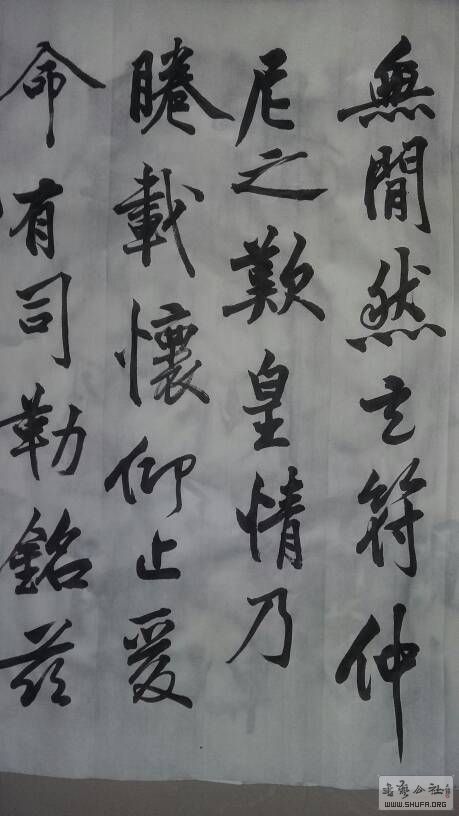 無閒然之符仲
尼之歎皇情乃
睠載懷仰止爰
命有司勒銘茲
書法公社
WWW.SHUFA.ORG